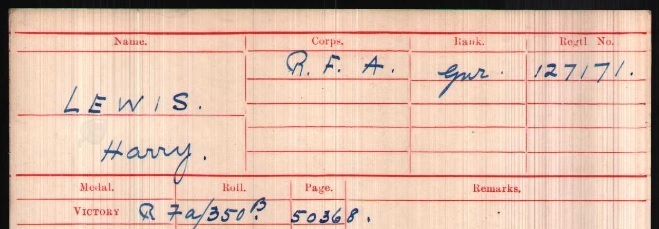 Name. Corps. Rank. Regtl No.
R. F. A. Gnr. 127171.
LEWIS.
Harry.
Medal. Roll. Page. Remarks.
VICTORY R 7a/350B. 50368.